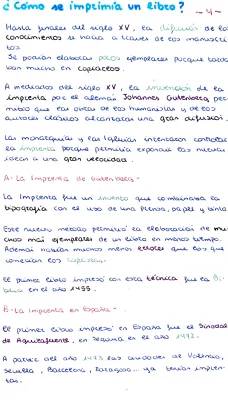 ¿Cómo se imprimía un libro? -4-
Hasta finales del siglo XV, la difusión de los
conocimientos se hacía a través de los manuscri
tos
Se podían elaborar pocos ejemplares porque tarda
ban mucho en copiarlos.
A mediados del siglo XV, la invención de la
imprenta por el alemán Johannes Gutenberg per
mitió que las obras de los humanistas y de los
autores clásicos alcanzaran una gran difusión.
Las monarquías y las Iglesias intentaron controlar
la imprenta porque permitía exponer las nuevas
ideas a una gran velocidad.
A- La Imprenta de Gutenberg-
La Imprenta fue un invento que combinaba la
tipografía con el uso de una prensa, papel y tinta
Este nuevo método permitió la elaboración de mu
chos más ejemplares de un libro en menos tiempo.
Además habían mucho menos errores que los que
cometían los copistas.
El primer libro impreso con esta técnica fue la Bi
blia en el año 1455.
B- La Imprenta en España-
El primer libro impreso en España fue el Sinodal
de Aguilafuente, en Segovia en el año 1472.
A partir del año 1473 las ciudades de Valencia,
Sevilla, Barcelona, Zaragoza... ya tenían impren-
tas.